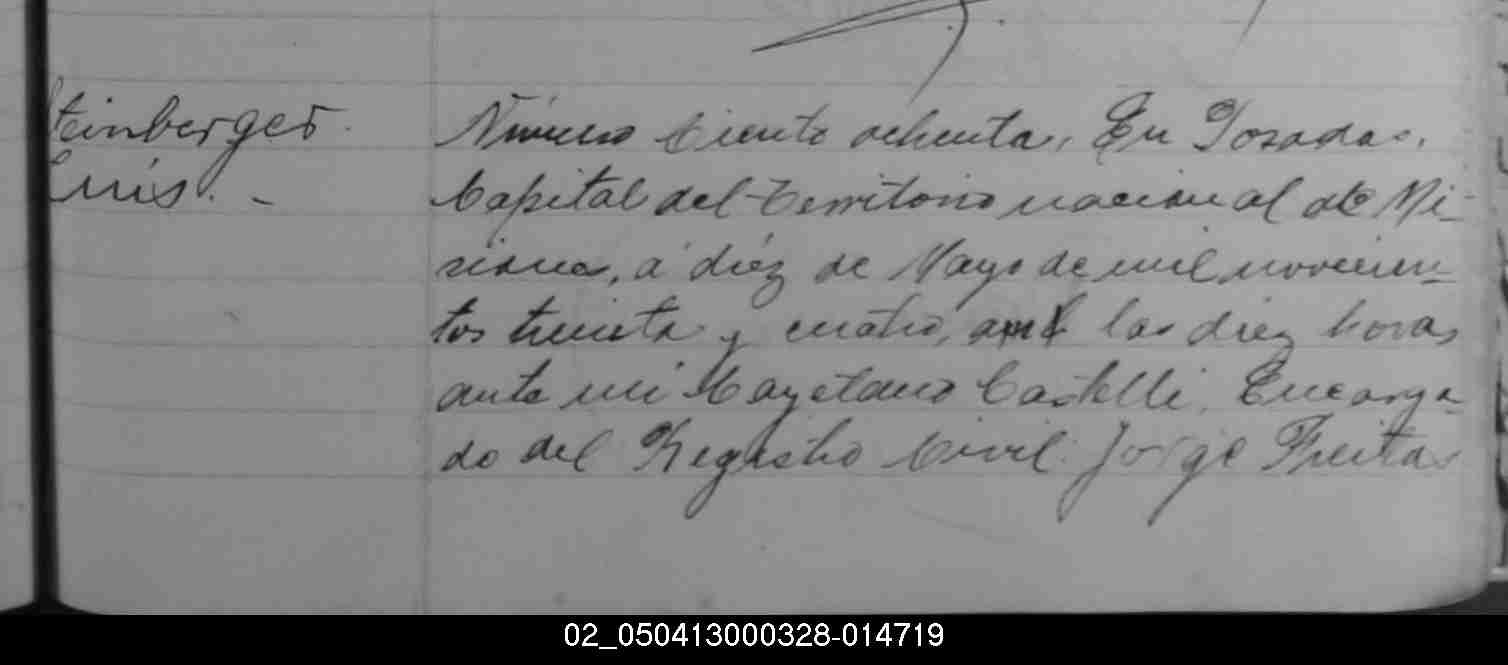 teinberger.
Luis. -
Número Ciento ochenta, En Posadas,
Capital del Territorio nacional de Mi-
siones, á diéz de Mayo de mil novecien-
tos treinta y cuatro, a las diez horas
ante mi Cayetano Castelli, Encarga-
do del Registro Civil: Jorge Freitas
02_050413000328-014719